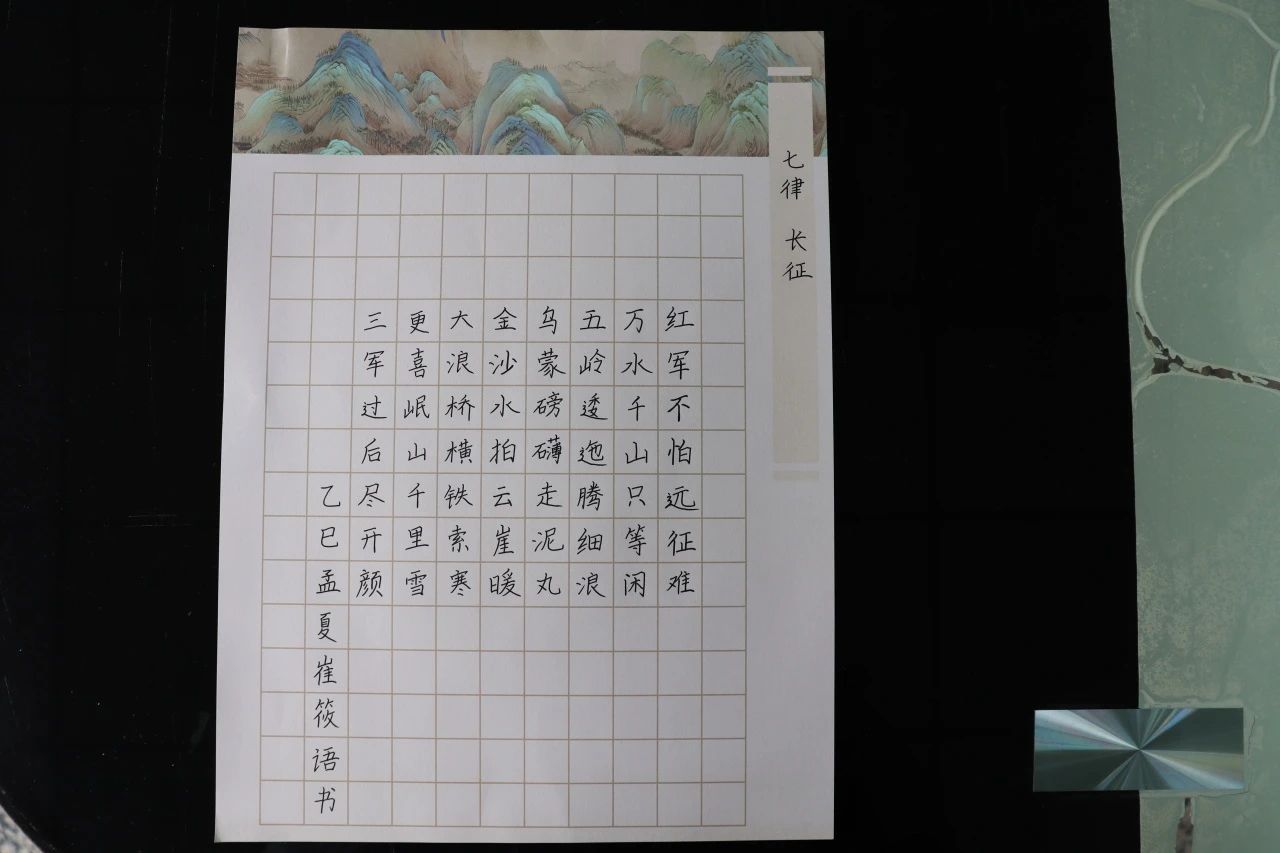 七律 长征
红军不怕远征难
万水千山只等闲
五岭逶迤腾细浪
乌蒙磅礴走泥丸
金沙水拍云崖暖
大浪桥横铁索寒
更喜岷山千里雪
三军过后尽开颜
乙巳孟夏崔筱语书